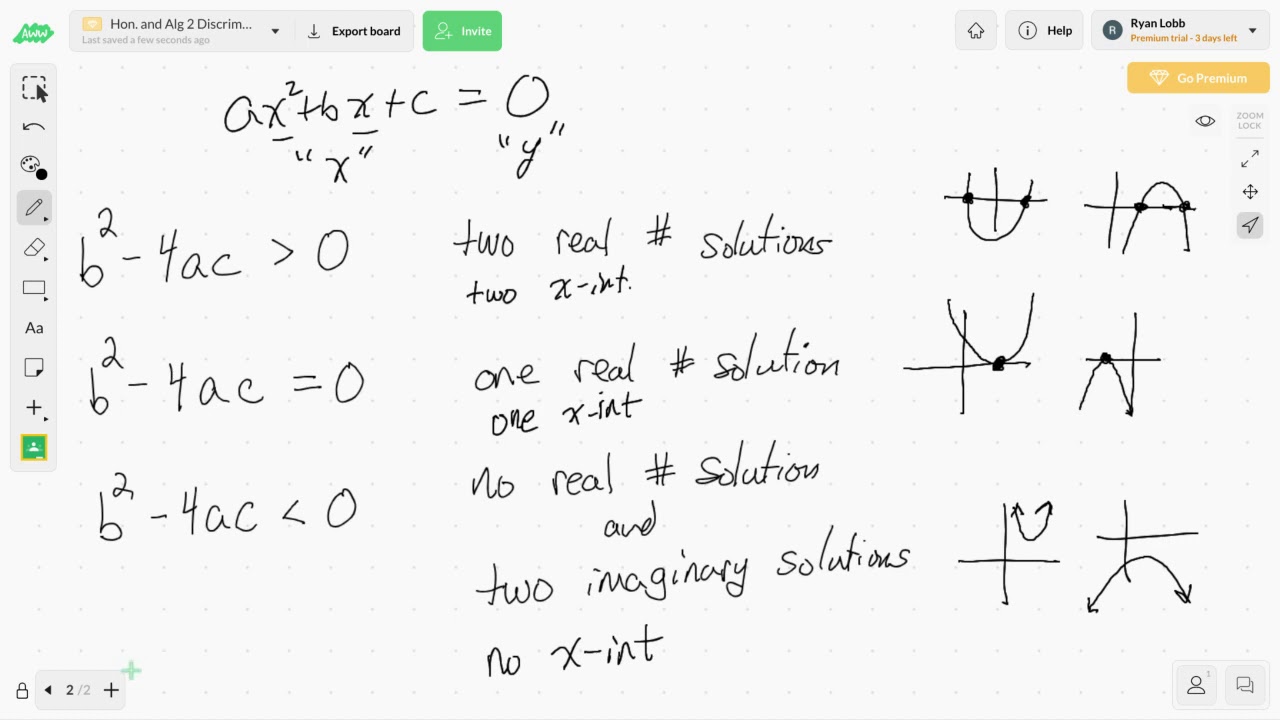 AWW
Hon. and Alg 2 Discrim...
Last saved a few seconds ago
Export board
Invite
Help
R
Ryan Lobb
Premium trial - 3 days left
Go Premium
ZOOM
LOCK
Aa
ax²+bx+c = 0
"x" "y"
b²-4ac > 0 two real # solutions
two x-int.
b²-4ac = 0 one real # solution
one x-int
b²-4ac < 0 no real # solution
and
two imaginary solutions
no x-int
2 /2
1